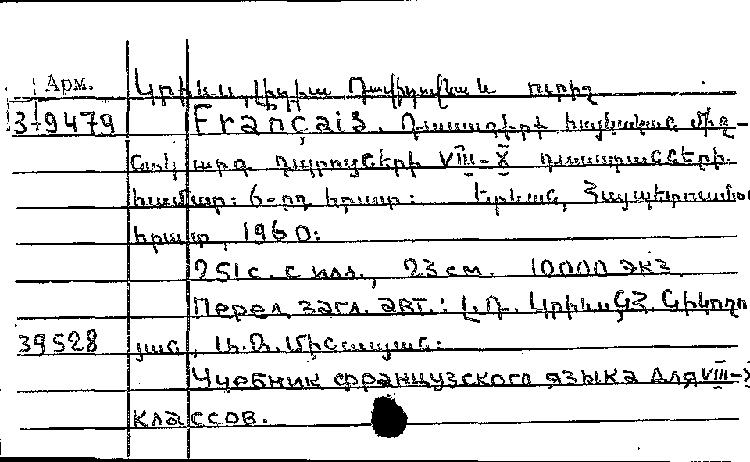 Арм.
Կրիևս, Լիդիա Դավիդովնա և ուրիշ
3-9479 Français. Դասագիրք հայկական միջ-
նակարգ դպրոցների VIII-X դասարանների
համար: 6-րդ հրատ: Երևան, Հայպետուսմ
հրատ, 1960:
251 с. с илл., 23 см. 10000 экз
Перед загл. авт.:
39528 յան,
Учебник французского языка для VIII-X
классов.